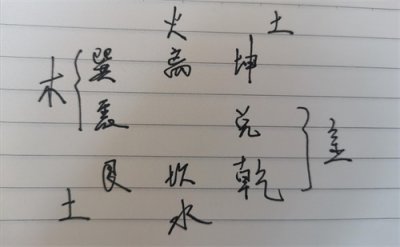 火 土
巽 离 坤
木
震 兑
金
艮 坎 乾
土 水